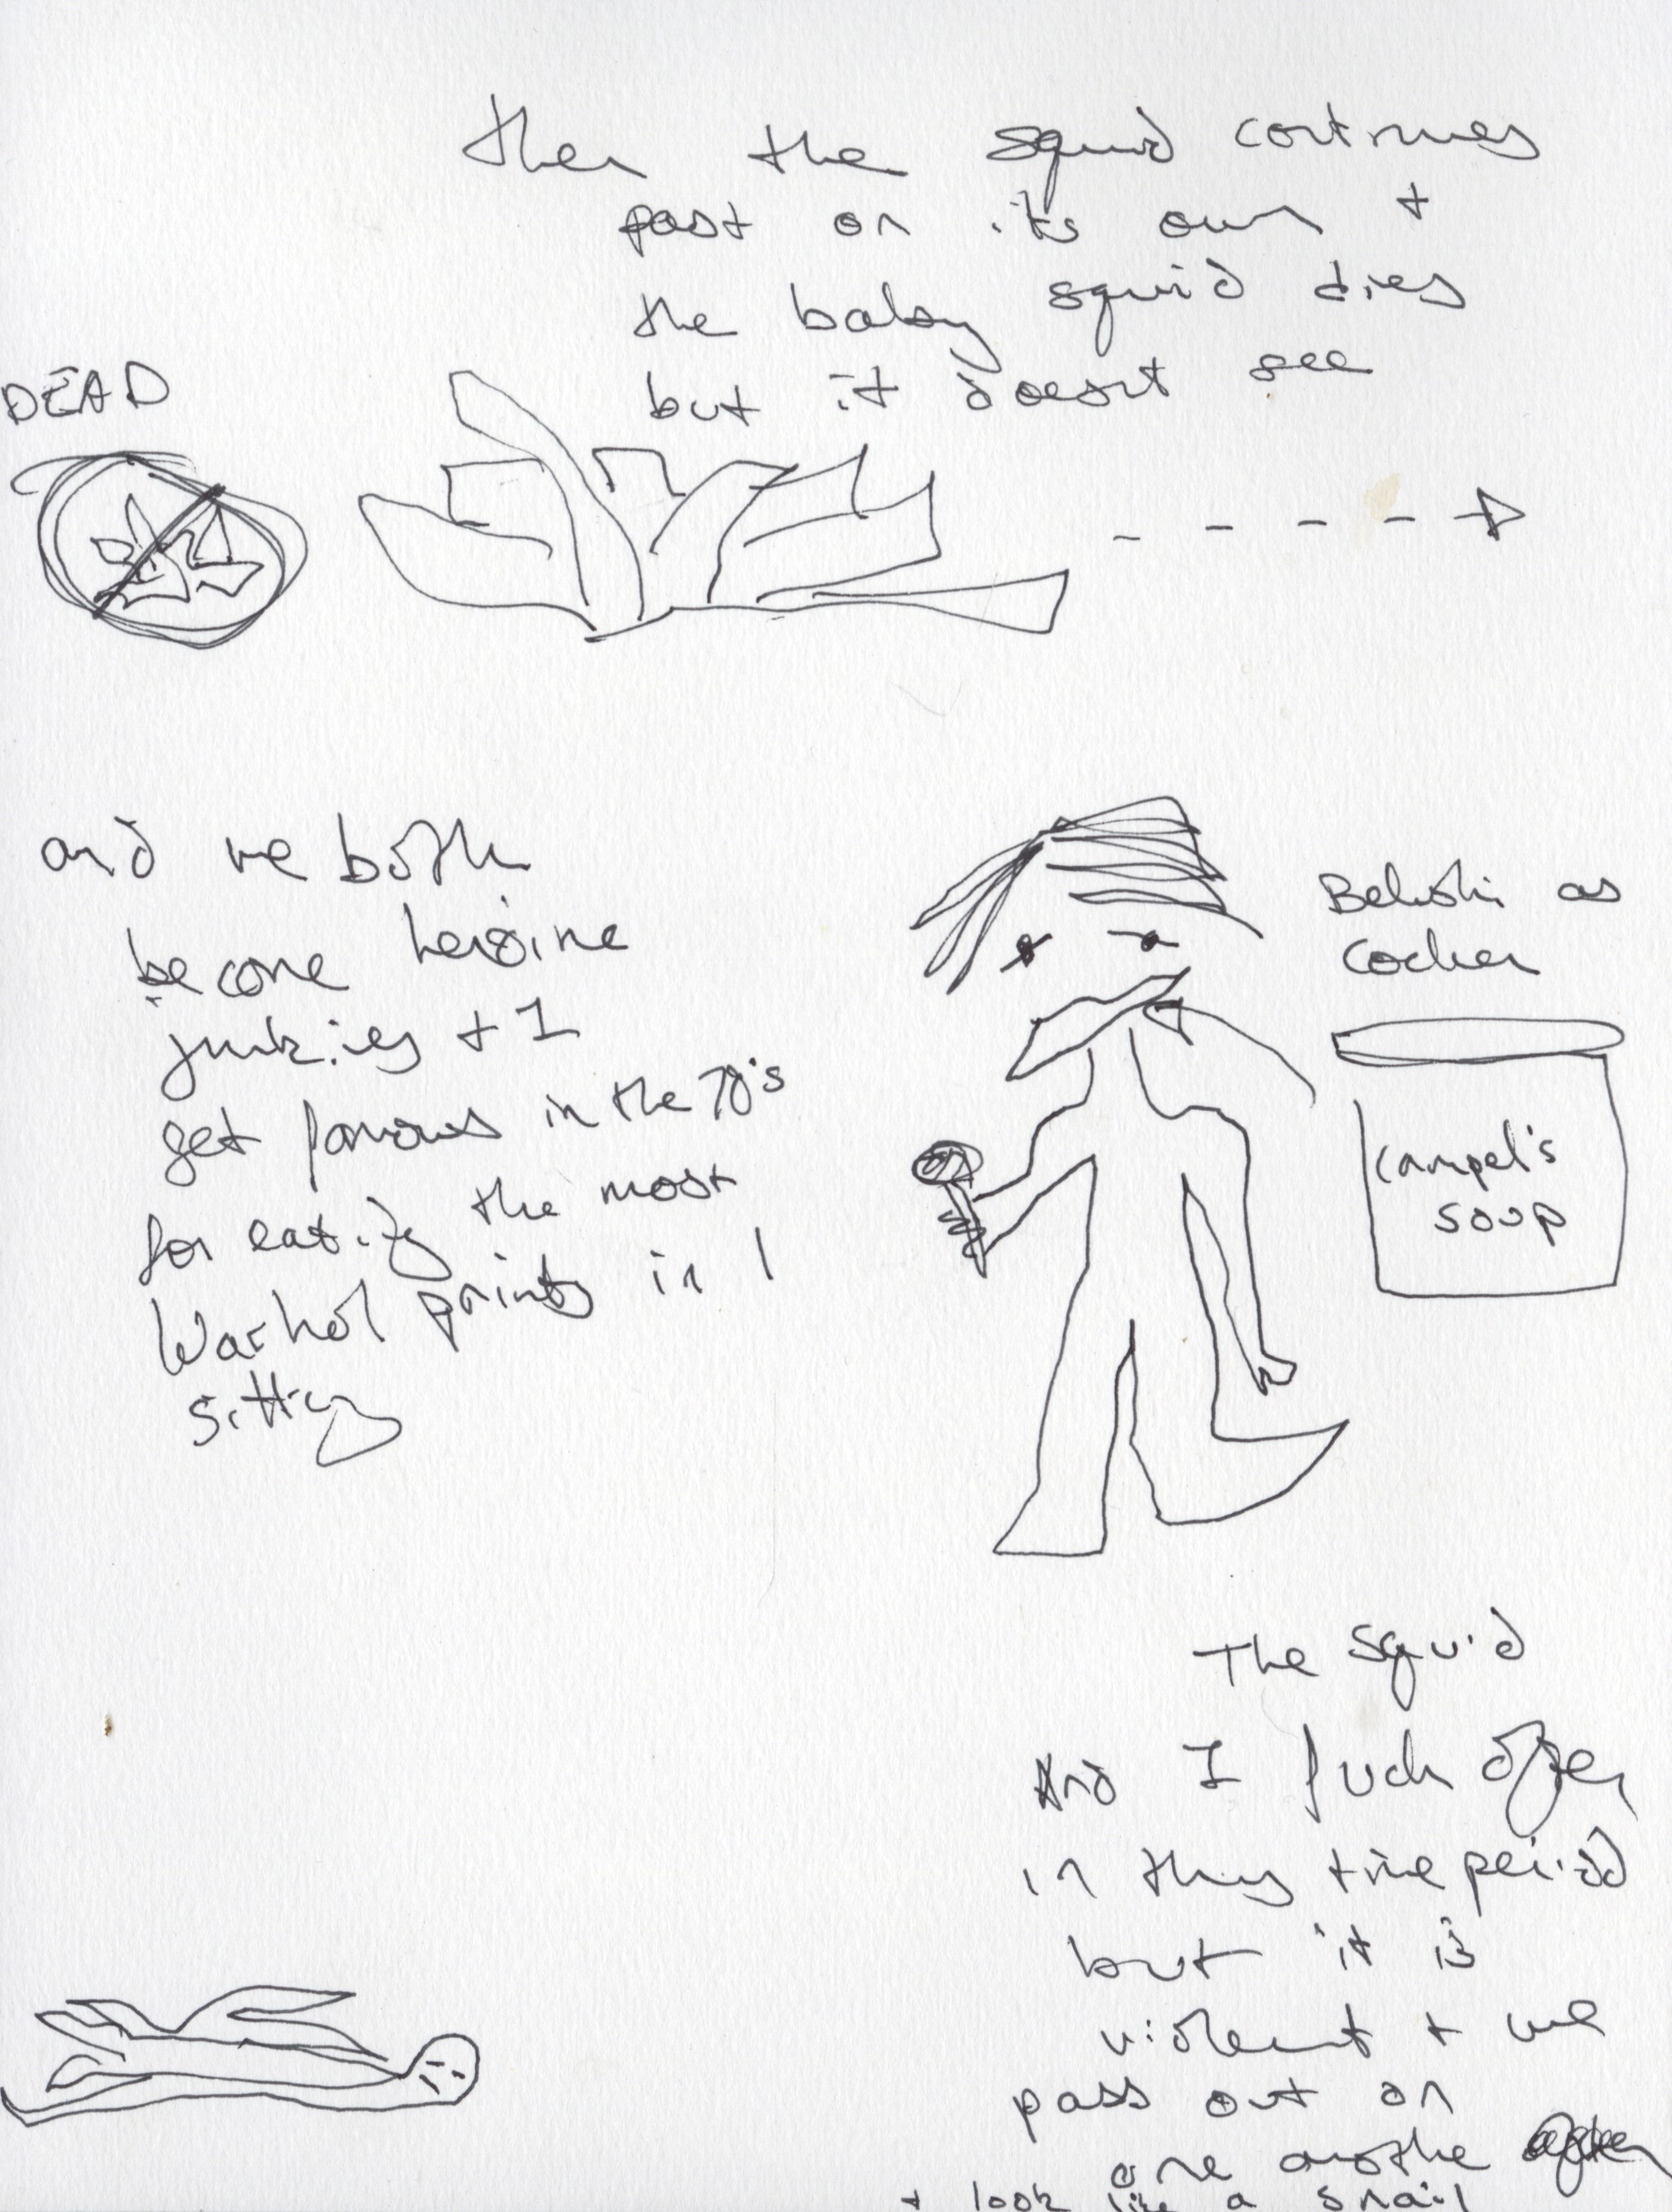 then the squid continues
past on its own +
the baby squid dies
but it doesnt see
DEAD
and we both
become heroine
junkies + I
get famous in the 70's
for eating the most
Warhol prints in 1
sitting
Belushi as
Cocker
Campel's
soup
The squid
And I fuck often
in this time period
but it is
violent + we
pass out on
one another often
+ look like a snail